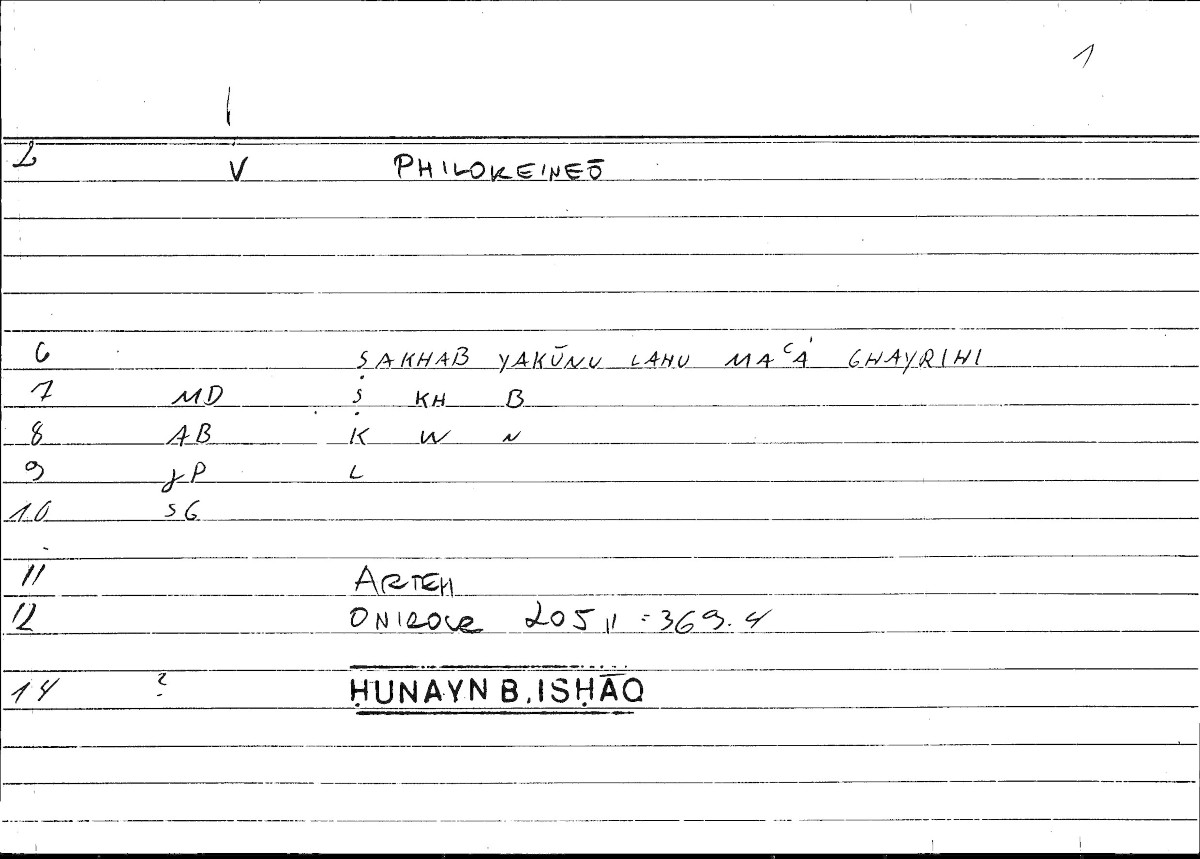 1
2 V PHILOKEINEŌ
6 ṢAKHAB YAKŪNU LAHU MAʿA GHAYRIHI
7 MD Ṣ KH B
8 AB K W N
9 JP L
10 SG
11 ARTEM
12 ONIROCR 205,11 = 369.4
14 ? ḤUNAYN B. ISḤĀQ